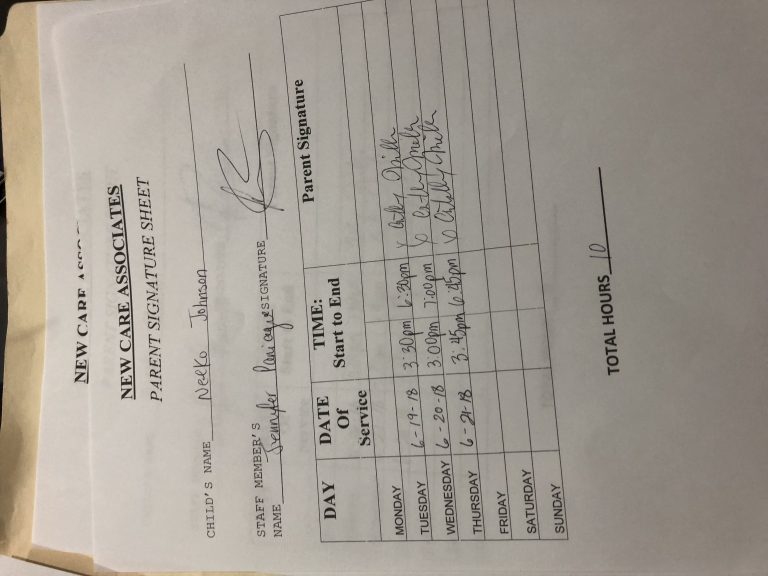 NEW CARE ASSOC
NEW CARE ASSOCIATES
PARENT SIGNATURE SHEET
CHILD'S NAME Neeko Johnson
STAFF MEMBER'S
NAME Jennyfer Paniague SIGNATURE
DAY DATE Of Service TIME: Start to End Parent Signature
MONDAY
TUESDAY 6-19-18 3:30pm 6:30pm x
WEDNESDAY 6-20-18 3:00pm 7:00pm x
THURSDAY 6-21-18 3:45pm 6:45pm x
FRIDAY
SATURDAY
SUNDAY
TOTAL HOURS 10